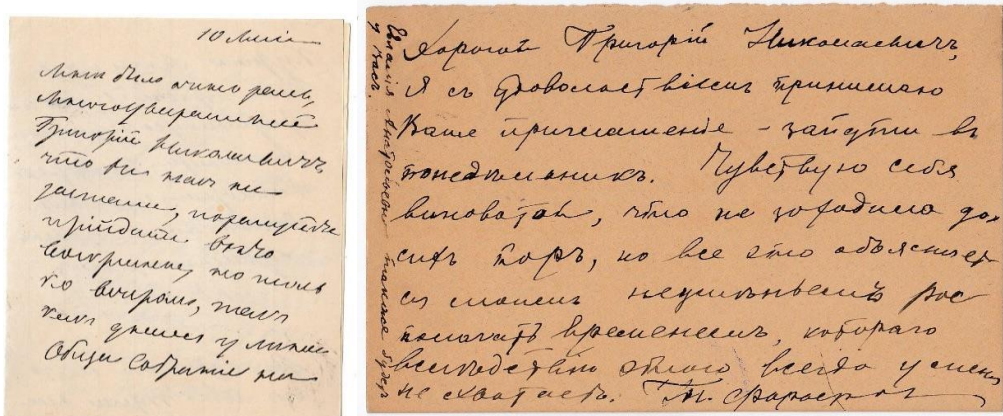 10
Мнѣ было
Многоуважаемый
Григорій Николаевичъ
что Вы
застали, пожалуйста
приѣдите
воскресенье, но только
ко вечеру, такъ
какъ днемъ у меня
Общее Собраніе на
Дорогой Григорій Николаевичъ,
Я съ удовольствіемъ принимаю
Ваше приглашеніе - зайдти въ
понедѣльникъ. Чувствую себя
виноватой, что не заходила до
сихъ поръ, но все это объясняет
ся моимъ неумѣньемъ рас
полагать временемъ, котораго
вслѣдствіе этого всегда у меня
не хватаетъ.
Евгенія также будет
у Васъ.